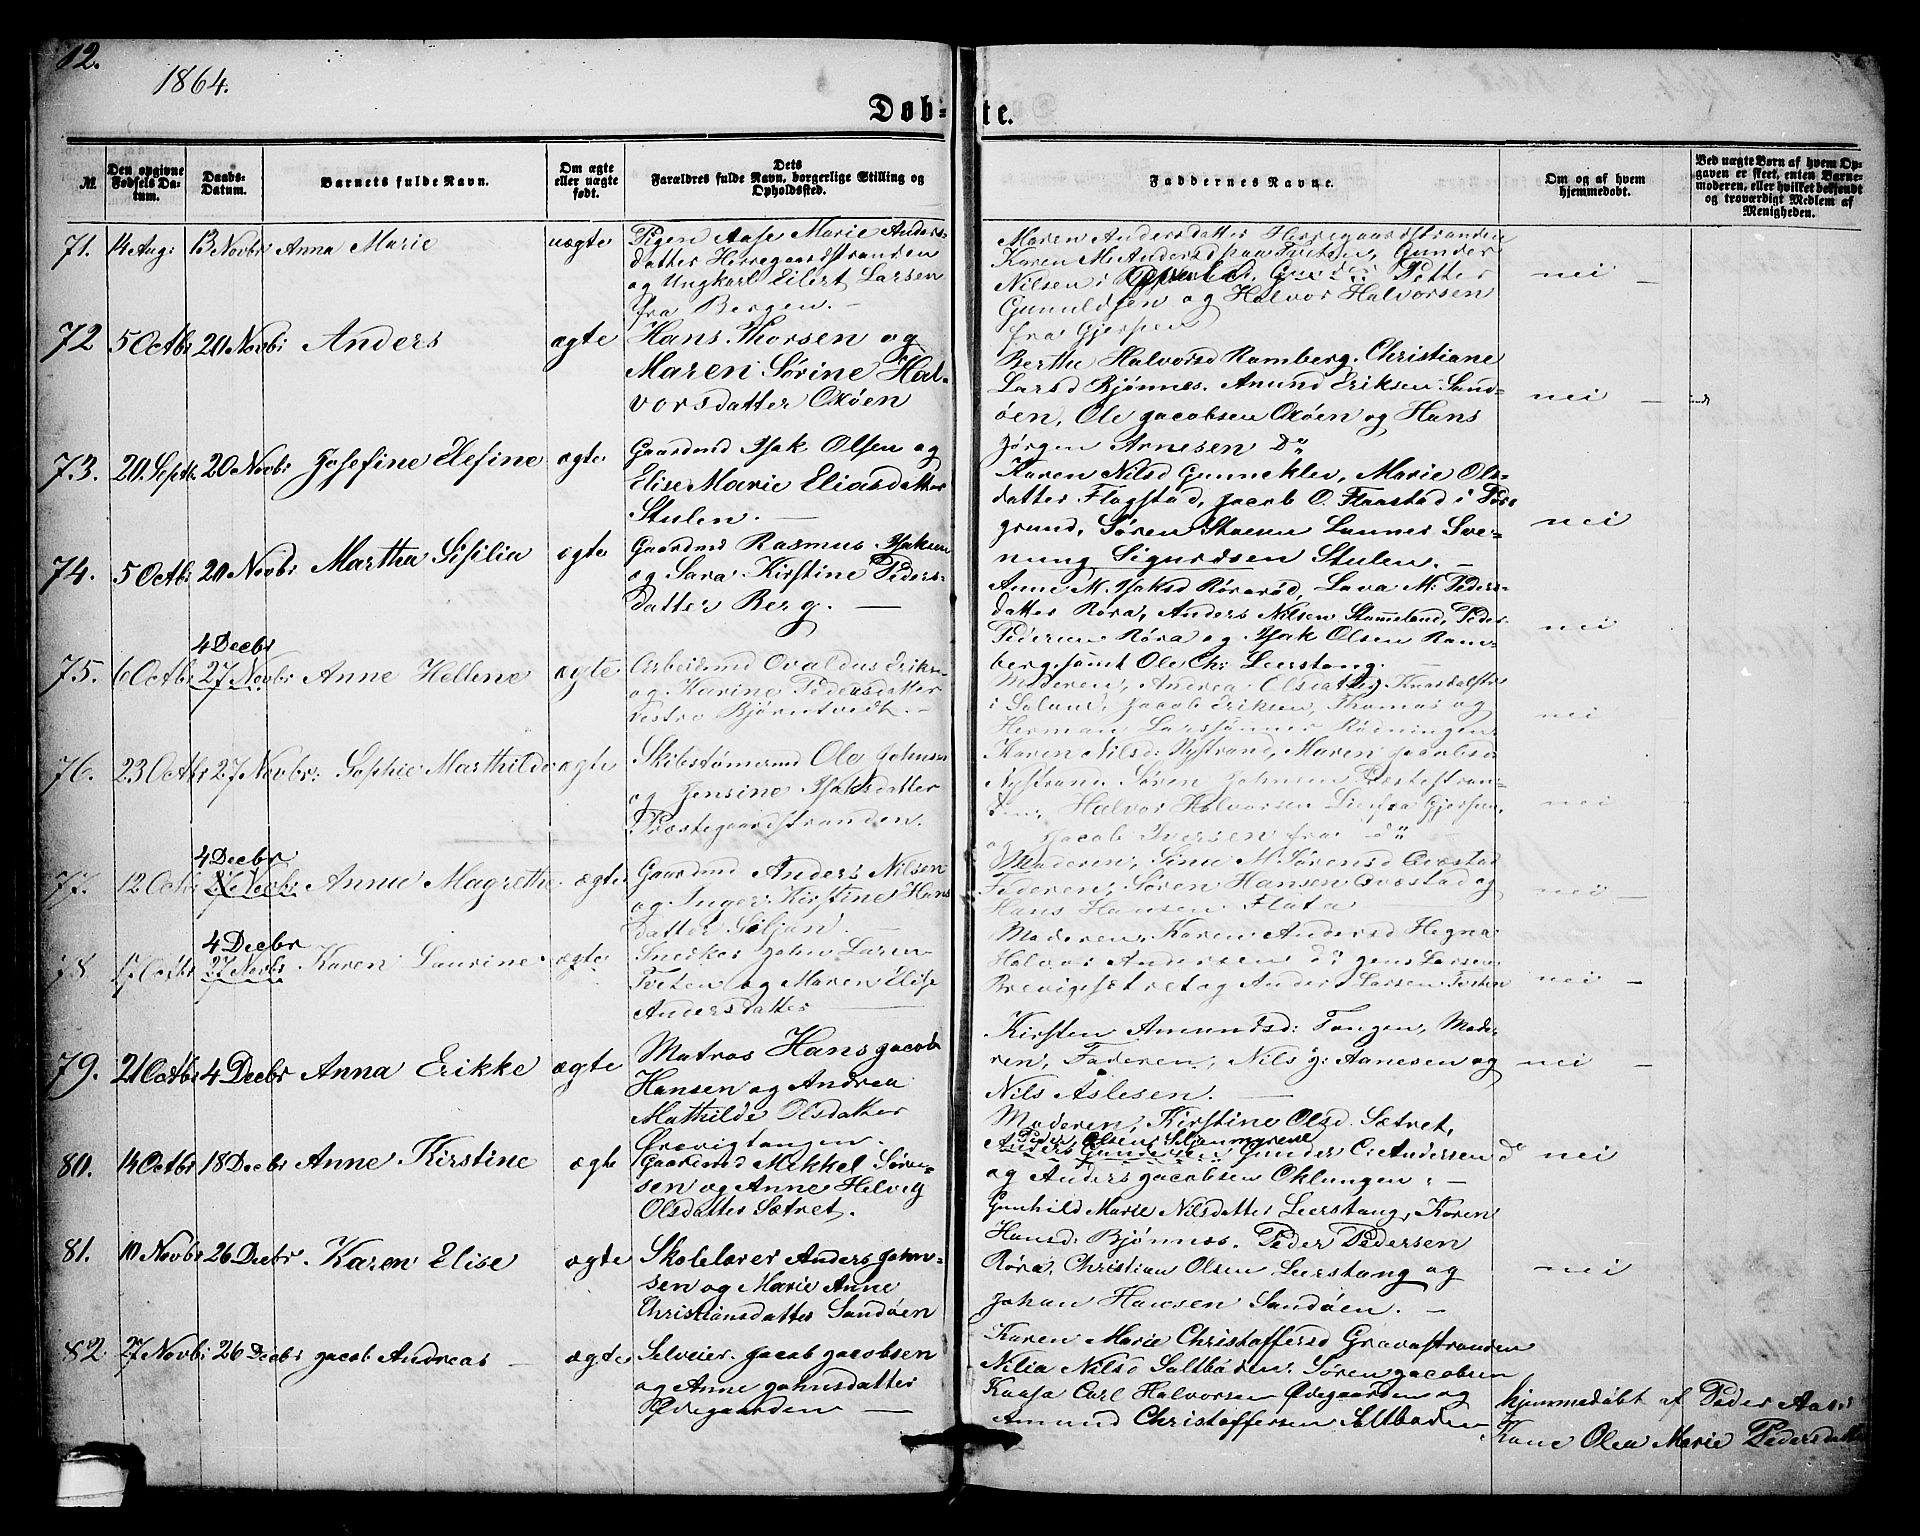 12.
1864.
Døb-te.
№
Den opgivne Fødsels Datum.
Daabs-Datum.
Barnets fulde Navn.
Om ægte eller uægte født.
Dets Forældres fulde Navn, borgerlige Stilling og Opholdssted.
Faddernes Navne.
Om og af hvem hjemmedøbt.
Ved uægte Børn af hvem Opgaven er skeet, enten Barnemoderen, eller hvilket bekjendt og troværdigt Medlem af Menigheden.
71. 14 Aug: 13 Novbr Anna Marie uægte
Pigen Aase Marie Anders-
datter Herregaardstranden
og Ungkarl Eilert Larsen
fra Bergen. —
Maren Andersdatter Herregaardstranden
Karen M. Andersd paa Tveten, Gunder
Nilsen i Petter
Gunuldsen og Halvor Halvorsen
fra Gjerpen
nei —
72 5 Octbr 20 Novbr Anders ægte
Hans Thorsen og
Maren Sørine Hal-
vorsdatter Oxøen
Berthe Halvorsd Ramberg. Christiane
Larsd Bjønnes. Amund Eriksen Sand-
øen, Ole Jacobsen Oxøen og Hans
Jørgen Arnesen D"
nei —
73. 20 Septb. 20 Novbr Josefine Elefine ægte
Gaardmd Isak Olsen og
Elise Marie Eliasdatter
Stulen. —
Karen Nilsd Gunneklev, Marie Ols-
datter Flagstad, Jacob O. Flaastad i Pors
grund, Søren Lunnes Sve-
nung Sigurdsen Stulen. —
nei
74. 5 Octbr 20 Novbr Martha Sisilia ægte
Gaardmd Rasmus Isaksen
og Sara Kirstine Peders-
datter Berg. —
Anne M. Isaksd Rørarød, Lava M: Peders-
datter Røra, Anders Nilsen Stammeland, Peder
Pedersen Røra og Isak Olsen Ram-
berg samt Ole Chr Leerstang. —
nei —
75. 6 Octbr 4 Decbr 27 Novbr Anne Hellene ægte
Arbeidsmd Ovaldus Eriksen
og Karine Pedersdatter
vestre Bjørntvedt. —
Moderen, Andrea Olsdatter Knardalstr
i Solum, Jacob Eriksen, Thomas og
Herman Larssønner Rødningen
nei —
76. 23 Octbr 27 Novbr. Sophie Marthilde ægte
Skibstømermd Ole Johnsen
og Jensine Isaksdatter
Præstegaardstranden.
Karen Nilsd: Nystrand, Maren Jacobsd
Nystrand Søren Johnsen Præstestran-
den, Halvor Halvorsen Lien fra Gjerpen,
og Jacob Iversen fra d"
nei —
77. 12 Octbr 4 Decbr 27 Novbr Anna Magrethe. ægte
Gaardmd Anders Nilsen
og Inger Kirstine Hans
datter Siljan. —
Moderen, Sina M. Sørensd Ovestad
Federen, Søren Hansen Ovestad og
Hans Hansen Flata —
nei —
78 17 Octbr 4 Decbr 27 Novbr Karen Laurine ægte
Snedker John Larsen
Tveten og Maren Elise
Andersdatter —
Moderen, Karen Andersd Hegna
Halvor Andersen d: Jens Larsen
Brevigsætret og Anders Larsen Tveten
nei —
79. 21 Octbr 4 Decbr Anna Erikke ægte
Matros Hans Jacob
Hansen og Andrea
Mathilde Olsdatter
Ørevigtangen.
Kirsten Amundsd: Tangen, Mode-
ren, Faderen, Nils J: Aanesen og
Nils Aslesen. —
nei —
80. 14 Octbr 18 Decbr Anne Kirstine ægte
Gaardmd Mikkel Søren-
sen og Anne Helvig
Olsdatter Sætret.
Moderen, Kirstine Olsd. Sætret,
Peder Olsen Siljemyrene
Anders Gundersen Gunder C. Andersen d
og Anders Jacobsen Oklungen. —
nei
81. 10 Novbr 26 Decbr. Karen Elise ægte
Skolelærer Anders John-
sen og Marie Anne
Christiansdatter Sandøen
Gunhild Marie Nilsdatter Leerstang, Karen
Hansd: Bjønnes. Peder Pedersen
Røra, Christian Olsen Leerstang og
Johan Hansen Sandøen. —
nei —
82. 27 Novbr 26 Decbr Jacob Andreas — ægte
Selveier. Jacob Jacobsen
og Anne Johnsdatter
Ødegaarden —
Karen Marie Christoffersd Gravastranden
Nilia Nilsd Saltboden. Søren Jacobsen
Kaasa Carl Halvorsen Ødegaarden og
Amund Christoffersen Altboden
hjemmedøbt af Peder Aases
Kone Olea Marie Pedersdatter